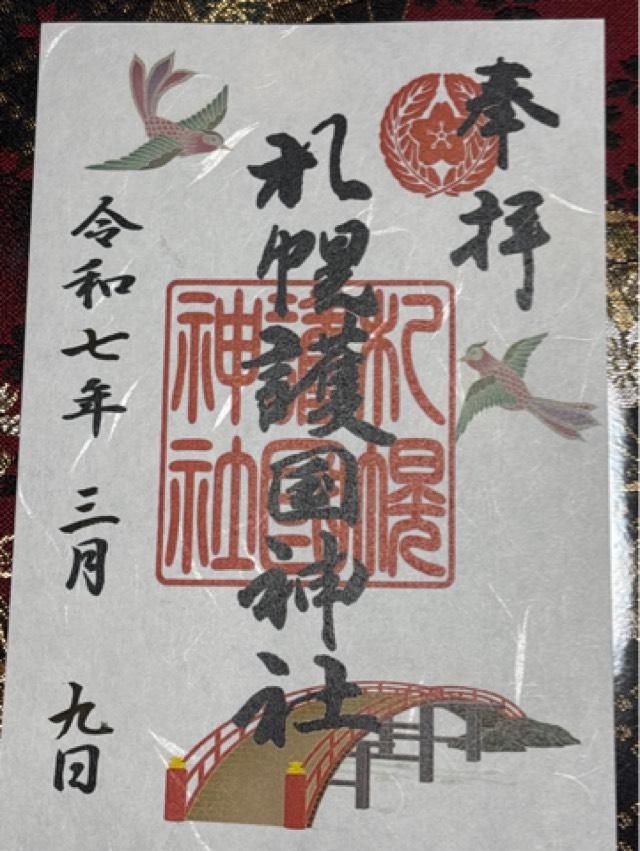 奉拝
札幌護国神社
札幌
護國
神社
令和七年 三月 九日